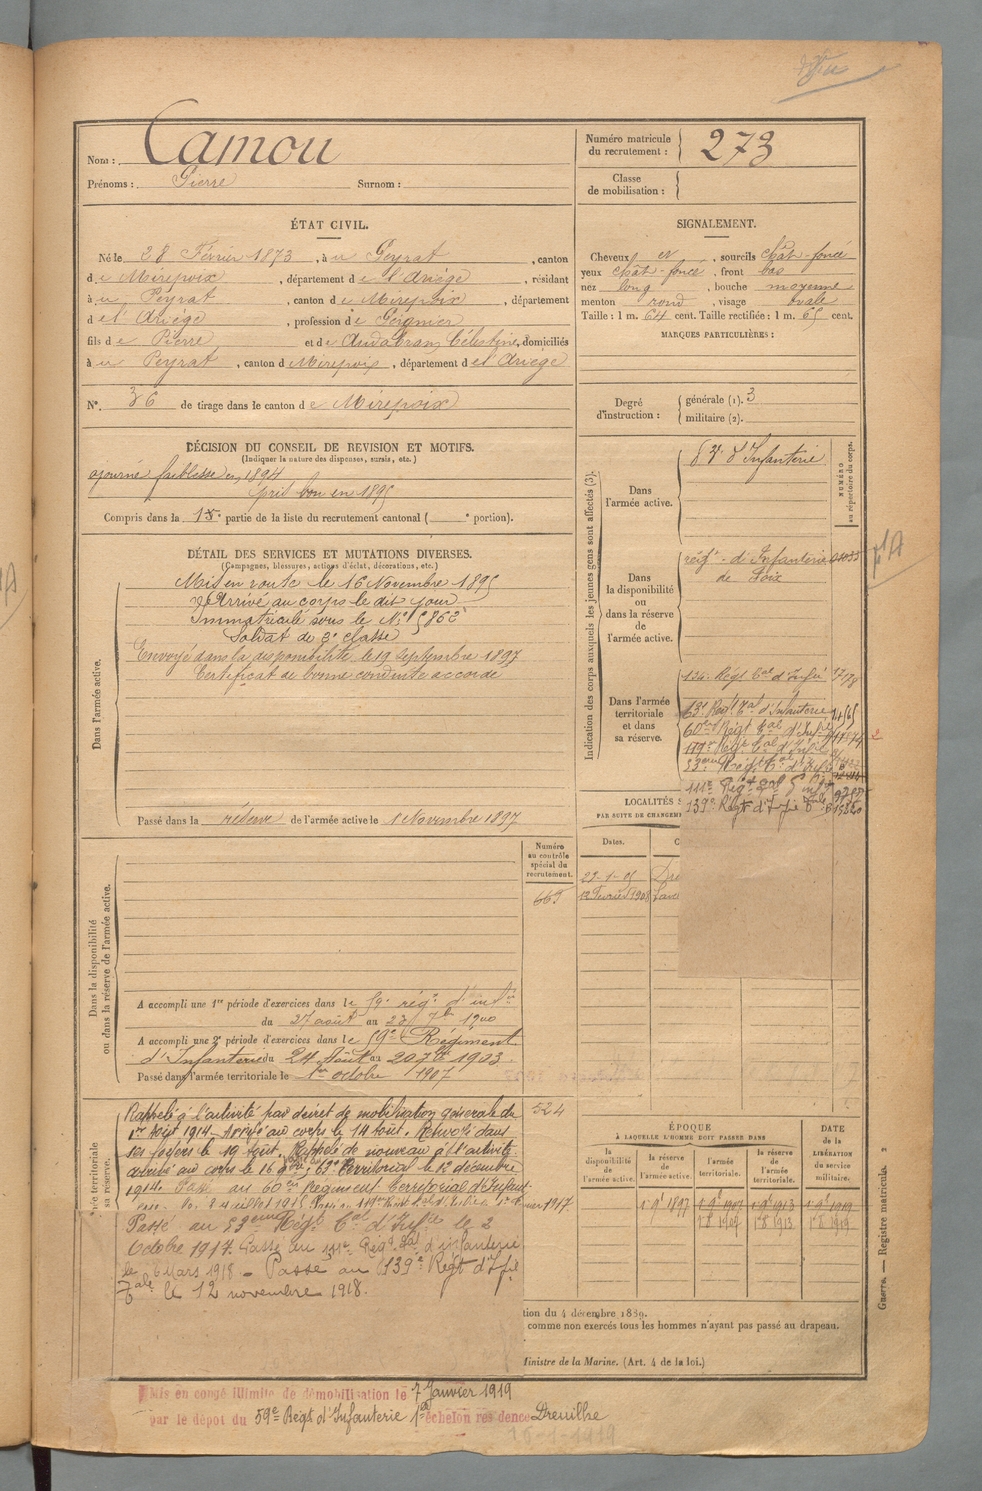 Nom : Camou
Prénoms : Pierre Surnom :
Numéro matricule du recrutement : 273
Classe de mobilisation :
ÉTAT CIVIL.
Né le 28 Février 1873, à u Peyrat, canton
d e Mirepoix, département d e l'Ariège, résidant
à u Peyrat, canton d e Mirepoix, département
d e l'Ariège, profession d e Peignier
fils d e Pierre et d e Célestine, domiciliés
à u Peyrat, canton d e Mirepoix, département d e l'Ariège
N°. 36 de tirage dans le canton d e Mirepoix
SIGNALEMENT.
Cheveux et, sourcils chât-foncé
yeux chât-foncé, front bas
nez long, bouche moyenne
menton rond, visage ovale
Taille : 1 m. 64 cent. Taille rectifiée : 1 m. 65 cent.
MARQUES PARTICULIÈRES :
Degré d'instruction : générale (1). 3
militaire (2).
DÉCISION DU CONSEIL DE REVISION ET MOTIFS.
(Indiquer la nature des dispenses, sursis, etc.)
ajourné faiblesse en 1894
pris bon en 1895
Compris dans la 1re partie de la liste du recrutement cantonal ( e portion).
DÉTAIL DES SERVICES ET MUTATIONS DIVERSES.
(Campagnes, blessures, actions d'éclat, décorations, etc.)
Dans l'armée active.
Mis en route le 16 Novembre 1895
Arrivé au corps le dit jour
Immatriculé sous le N°
Soldat de 2e classe
Envoyé dans la disponibilité le 19 Septembre 1897
Certificat de bonne conduite accordé
Passé dans la réserve de l'armée active le 1 Novembre 1897
Indication des corps auxquels les jeunes gens sont affectés (3).
NUMÉRO au répertoire du corps.
Dans l'armée active.
d'Infanterie
Dans la disponibilité ou dans la réserve de l'armée active.
régt d'Infanterie
de Foix
Dans l'armée territoriale et dans sa réserve.
Régt tal d'Infie
63e Régt tal d'Infanterie
60e Régt tal d'Infie
119e Régt tal d'Infie
111e Régt
139e Régt d'Infie tale
LOCALITÉS
PAR SUITE DE CHANGEM
Dates.
23-1-05
12 Février 1908
Dans la disponibilité ou dans la réserve de l'armée active.
Numéro au contrôle spécial du recrutement.
A accompli une 1re période d'exercices dans le 59e régt d'infie
du 27 août au 23 7bre 1900
A accompli une 2e période d'exercices dans le 59e Régiment
d'Infanterie du 24 Août au 20 7bre 1903
Passé dans l'armée territoriale le 1er octobre 1907
524
Rappelé à l'activité par décret de mobilisation générale du
1er Août 1914. Arrivé au corps le 14 Août. Renvoyé dans
ses foyers le 19 Août. Rappelé de nouveau à l'activité
arrivé au corps le 16 63e Territorial le 12 décembre
1914. Passé au 60e Régiment Territorial d'Infant
Passé au Régt tal d'Infie le 2
Octobre 1917. Passé au 111e Régt tal d'infanterie
le 6 Mars 1918. Passé au 139e Régt d'Infie
tale le 12 novembre 1918.
ÉPOQUE
À LAQUELLE L'HOMME DOIT PASSER DANS
la disponibilité de l'armée active.
la réserve de l'armée active.
l'armée territoriale.
la réserve de l'armée territoriale.
DATE de la LIBÉRATION du service militaire.
tion du 4 décembre 1889.
comme non exercés tous les hommes n'ayant pas passé au drapeau.
Ministre de la Marine. (Art. 4 de la loi.)
Guerre. — Registre matricule. 2
Mis en congé illimité de démobilisation le 7 Janvier 1919
par le dépôt du 59e Régt d'Infanterie 1er échelon résidence Dreuilhe
15-1-1919